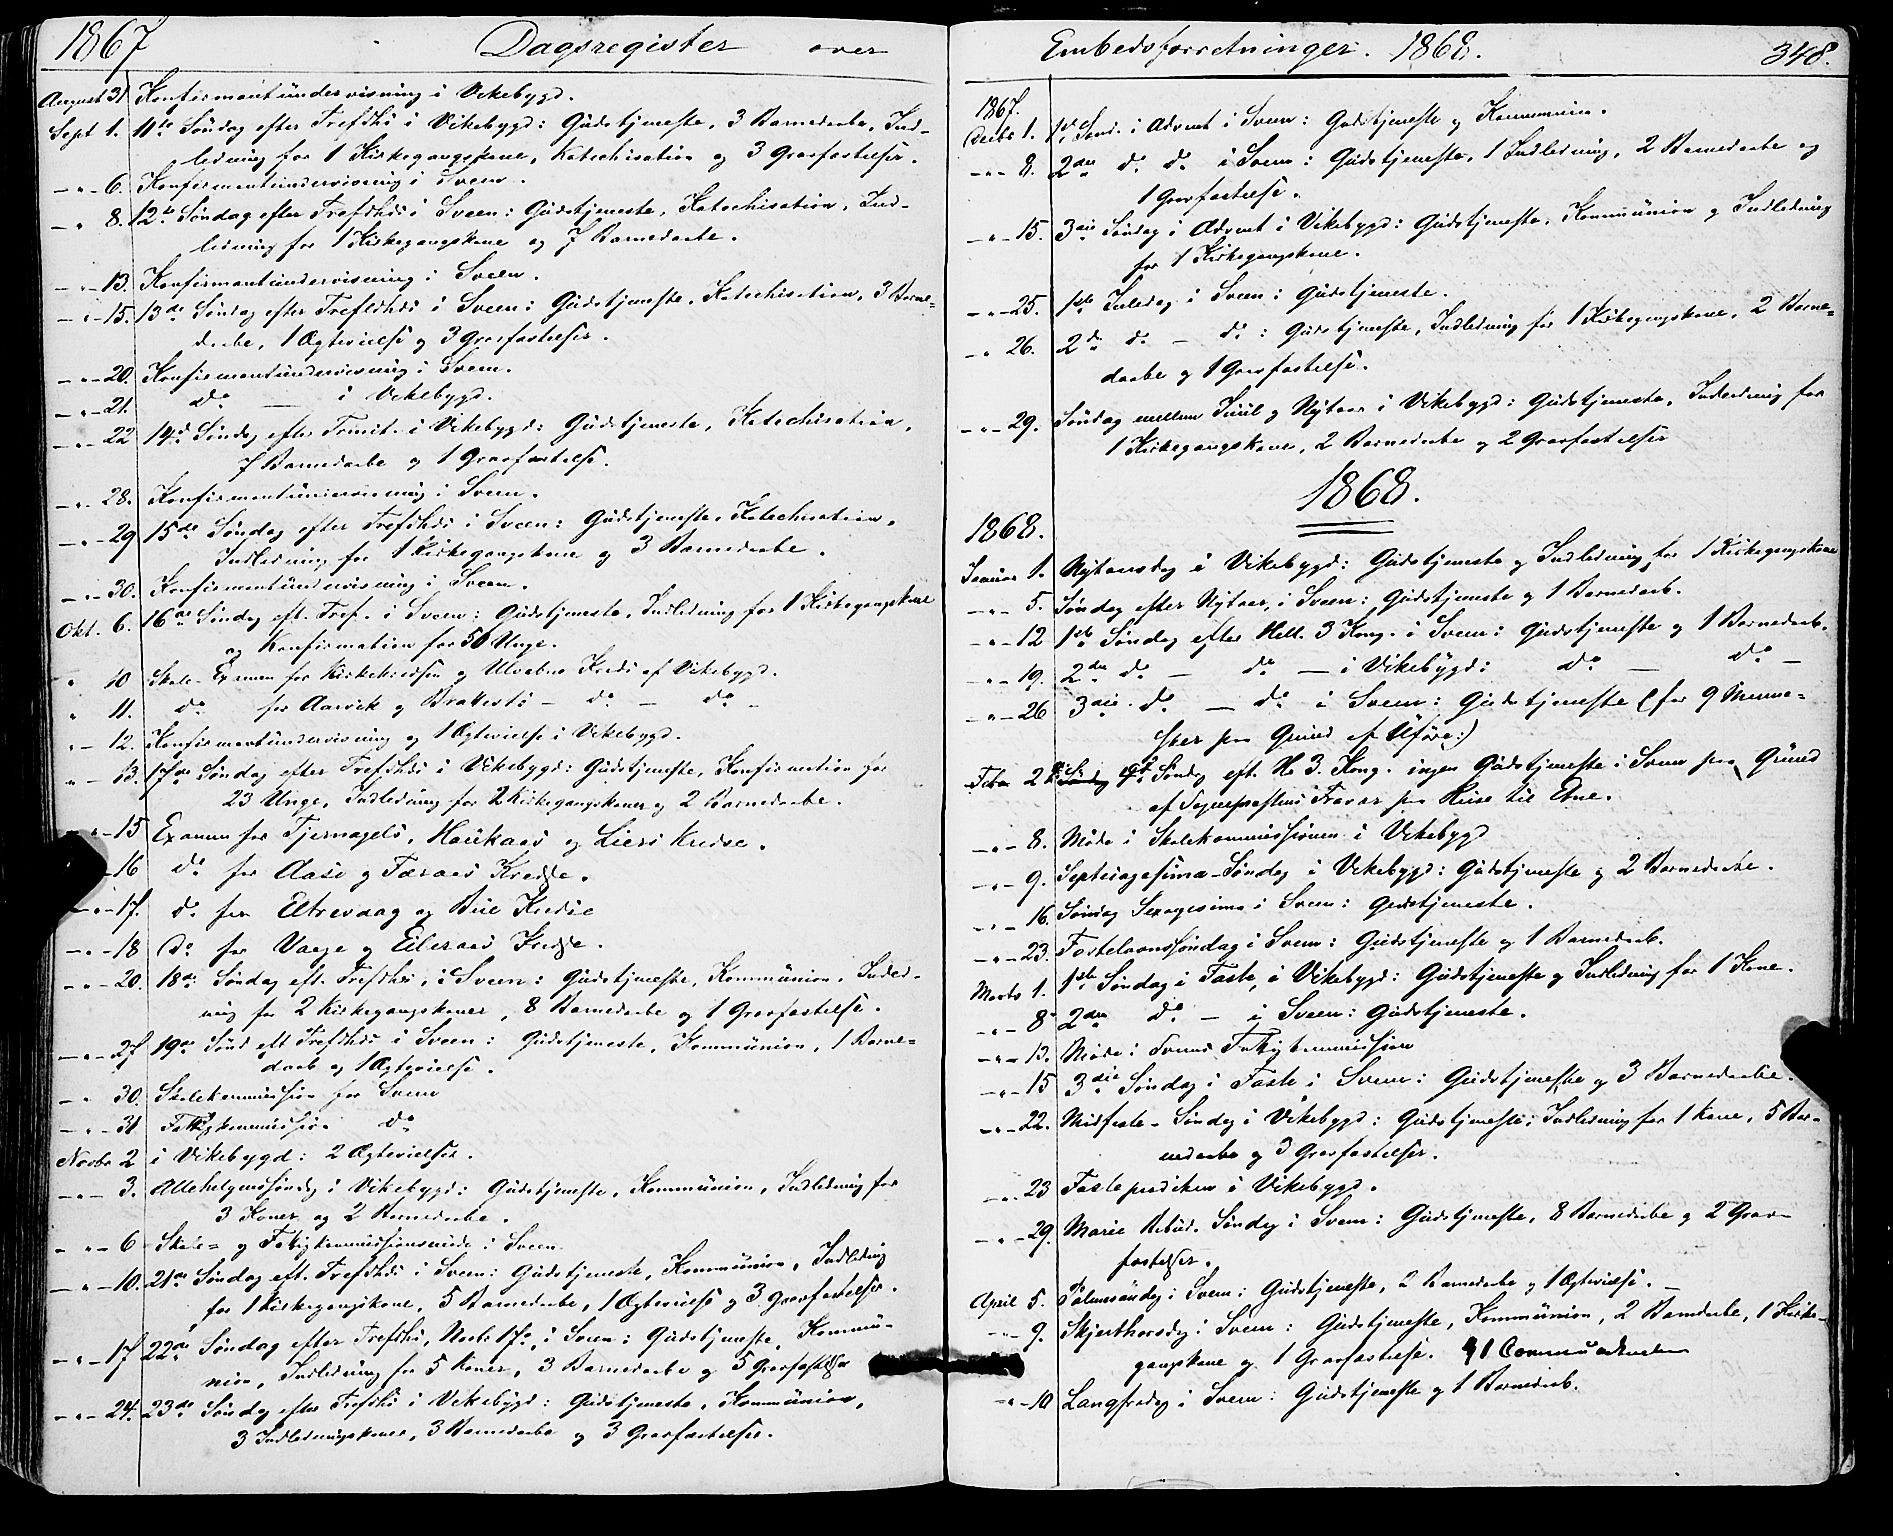 1867 Dagsregister over
August 31 Konfirmantundervisning i Vikebygd.
Sept 1. 11te Søndag efter Trefdhs i Vikebygd: Gudstjeneste, 3 Barnedaabe, Ind-
ledning for 1 Kirkegangskone, Katechisation og 3 Gravfæstelser.
— " — 6. Konfirmantundervisning i Sveen.
— " 8. 12te Søndag efter Trefdhds i Sveen: Gudstjeneste, Katechisation, Ind-
ledning for 1 Kirkegangskone og 7 Barnedaabe.
— " — 13. Konfirmantundervisning i Sveen.
— " — 15. 13de Søndag efter Trefdhds i Sveen: Gudstjeneste, Katechisation, 3 Barne-
daabe, 1 Ægtevielse og 3 Gravfæstelser.
— " — 20. Konfirmantundervisning i Sveen.
— " — 21. do — i Vikebygd.
— " — 22 14de Søndag efter Trinit. i Vikebygd: Gudstjeneste, Katechisation,
7 Barnedaabe og 1 Gravfæstelse.
— " — 28. Konfirmantundervisning i Sveen.
— " — 29 15de Søndag efter Trefdhds i Sveen: Gudstjeneste, Katechisation,
Indledning for 1 Kirkegangskone og 3 Barnedaabe.
— " — 30. Konfirmantundervisning i Sveen.
Okt. 6. 16de Søndag eft. Tref. i Sveen: Gudstjeneste, Indledning for 1 Kirkegangskone
og Konfirmation for 50 Unge.
" 10 Skole-Examen for Kirkekredsen og Ulvebne Kreds af Vikebygd.
" 11. do for Aarvik og Brakestø — do — do —
" — 12. Konfirmantundervisning og 1 Ægtevielse i Vikebygd.
" — 13. 17de Søndag efter Trefdhds i Vikebygd: Gudstjeneste, Konfirmation for
23 Unge, Indledning for 2 Kirkegangskoner og 2 Barnedaabe.
" — 15 Examen for Tjernagels, Haukaas og Liers Kredse.
— 16 do for Aase og Færaas Kredse.
— " — 17. do for Eltrevaag og Bue Kredse
— " — 18 do for Vaage og Eileraas Kredse.
— " — 20. 18de Søndag eft. Trefdhds, i Sveen: Gudstjeneste, Kommunion, Indled-
ning for 2 Kirkegangskoner, 8 Barnedaabe og 1 Gravfæstelse.
— " — 27 19de Sønd eft Trefdhds i Sveen: Gudstjeneste, Kommunion, 1 Barne-
daab og 1 Ægtevielse.
— " 30. Skolekommission for Sveen
— " — 31 Fattigkommission do
Novbr 2 i Vikebygd: 2 Ægtevielser.
— " — 3. Allehelgenssøndag i Vikebygd: Gudstjeneste, Kommunion, Indledning for
3 Koner og 2 Barnedaabe.
— " — 6 Skole- og Fattigkommissionsmøde i Sveen
— " — 10. 21de Søndag eft. Trefdhds i Sveen: Gudstjeneste, Kommunion, Indledning
for 1 Kirkegangskone, 5 Barnedaabe, 1 Ægtevielse og 3 Gravfæstelser.
— " — 17 22de Søndag efter Trefdhds, Novbr 17de, i Sveen: Gudstjeneste, Kommu-
nion, Indledning for 5 Koner, 3 Barnedaabe og 5 Gravfæstelser
— " — 24. 23de Søndag efter Trefdhs i Vikebygd: Gudstjeneste, Kommunion,
3 Indledningskoner, 3 Barnedaabe og 3 Gravfæstelser.
Embedsforretninger. 1868. 348.
1867.
Decbr 1. 1ste Sønd. i Advent i Sveen: Gudstjeneste og Kommunion.
— " — 8. 2den do do i Sveen: Gudstjeneste, 1 Indledning, 2 Barnedaabe og
1 Gravfæstelse.
— " — 15. 3die Søndag i Advent i Vikebygd: Gudstjeneste, Kommunion og Indledning
for 1 Kirkegangskone.
— " — 25. 1ste Juledag i Sveen: Gudstjeneste.
— " 26. 2den do — do: Gudstjeneste, Indledning for 1 Kirkegangskone, 2 Barne-
daabe og 1 Gravfæstelse.
— " — 29. Søndag mellem Juul og Nytaar i Vikebygd: Gudstjeneste, Indledning for
1 Kirkegangskone, 2 Barnedaabe og 2 Gravfæstelser
1868.
1868.
Januar 1. Nytaarsdag i Vikebygd: Gudstjeneste og Indledning for 1 Kirkegangskone
— " — 5. Søndag efter Nytaar, i Sveen: Gudstjeneste og 1 Barnedaab.
— " — 12 1ste Søndag efter Hell. 3 Kong. i Sveen: Gudstjeneste og 1 Barnedaab.
— " — 19. 2den do — do — i Vikebygd: do — do —
— " — 26 3die do — do i Sveen: Gudstjeneste (for 9 Menne-
sker paa Grund af Uføre:)
Febr 2 4de Søndag eft. H. 3. Kong. ingen Gudstjeneste i Sveen paa Grund
af Sognepræstens Fravær paa Reise til Etne.
— " — 8. Møde i Skolekommissionen i Vikebygd
— " — 9. Septuagesima-Søndag i Vikebygd: Gudstjeneste og 2 Barnedaabe.
— " — 16. Søndag Sexagesima i Sveen: Gudstjeneste.
— " — 23. Fastelavnssøndag i Sveen: Gudstjeneste og 1 Barnedaab.
Marts 1. 1ste Søndag i Faste, i Vikebygd: Gudstjeneste og Indledning for 1 Kone.
— " — 8 2den do — i Sveen: Gudstjeneste.
— " — 13. Møde i Sveens Fattigkommission
— " — 15 3die Søndag i Faste i Sveen: Gudstjeneste og 3 Barnedaabe.
— " — 22. Midfaste-Søndag i Vikebygd: Gudstjeneste, Indledning for 1 Kone, 5 Bar-
nedaabe og 3 Gravfæstelser.
— " 23 Fasteprædiken i Vikebygd.
— " — 29. Marie Bebud. Søndag i Sveen: Gudstjeneste, 8 Barnedaabe og 2 Grav-
fæstelser.
April 5. Palmesøndag i Sveen: Gudstjeneste, 2 Barnedaabe og 1 Ægtevielse. —
— " — 9. Skjærthorsdag i Sveen: Gudstjeneste, Kommunion, 2 Barnedaabe, 1 Kirke-
gangskone og 1 Gravfæstelse. 41 Communicanter
— " — 10 Langfredag i Sveen: Gudstjeneste og 1 Barnedaab.